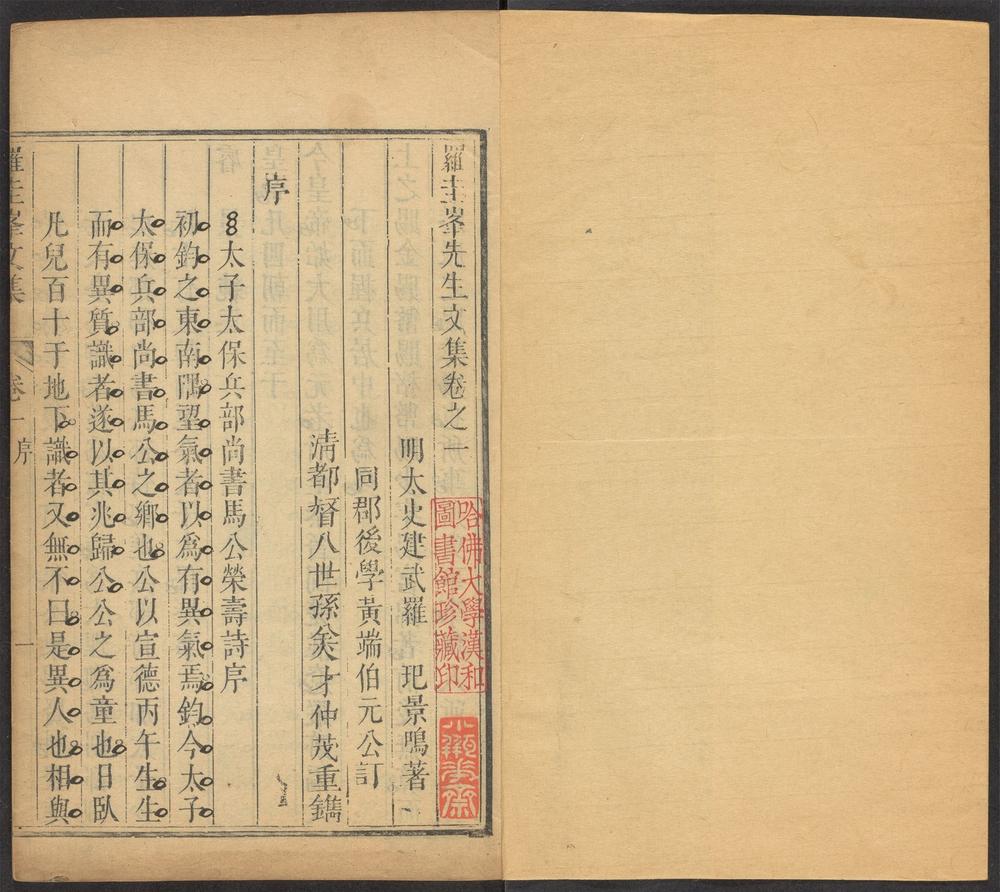 羅圭峯先生文集卷之一
明太史建武羅 玘景鳴著
同郡後學黃端伯元公訂
清都督八世孫美才仲茂重鐫
序
太子太保兵部尚書馬公榮壽詩序
初鈞之東南隅望氣者以爲有異氣焉鈞今太子
太保兵部尚書馬公之鄉也公以宣德丙午生生
而有異質識者遂以其兆歸公公之爲童也日臥
凡兒百十于地下識者又無不曰是異人也相與
羅圭峯文集
卷一 序
一
哈佛大學漢和
圖書館珍藏印